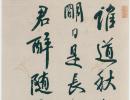 誰道秋
明日是長
君醉隨